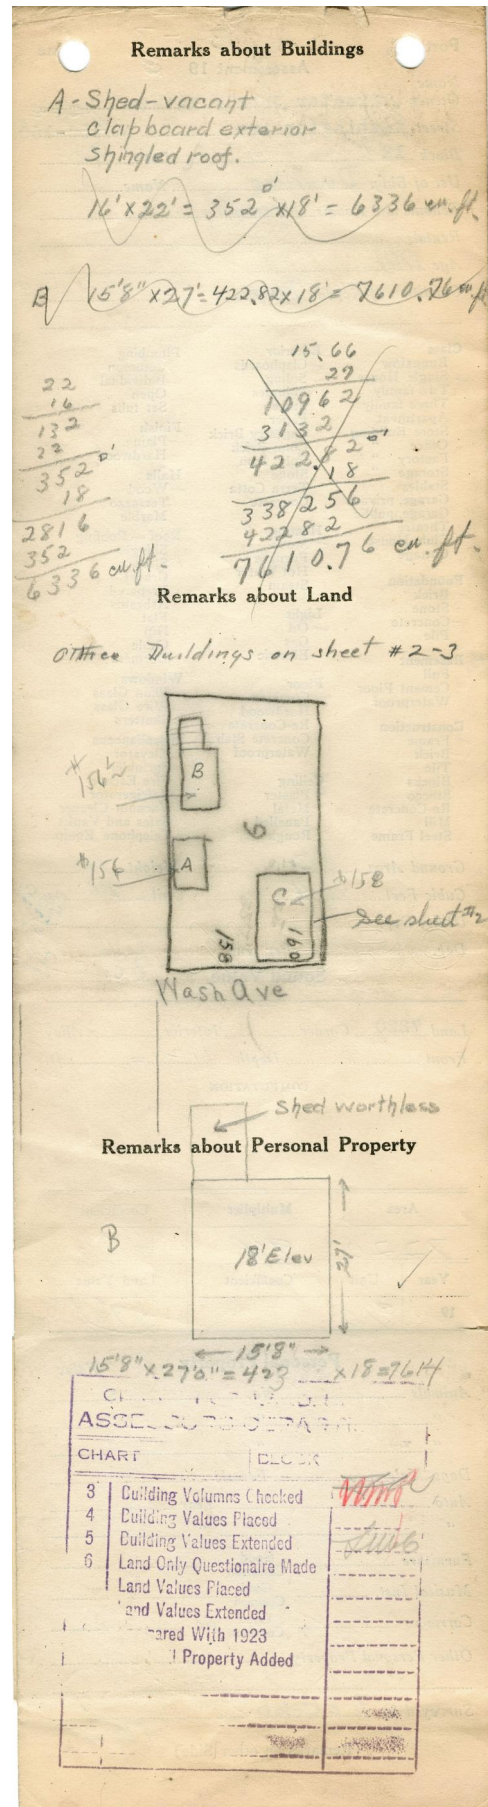 Remarks about Buildings
A - Shed - vacant
clapboard exterior
shingled roof.
16' x 22' = 352 □' x 18' = 6336 cu. ft.
B 15'8" x 27' = 422.82 x 18' = 7610.76 cu. ft.
22
16
132
22
352 □'
18
2816
352
6336 cu. ft.
15.66
27
10962
3132
422.82 □'
18
338256
42282
7610.76 cu. ft.
Remarks about Land
Other Buildings on sheet #2-3
B
#156½
9
#156
A
C
#158
See sheet #2
158
160
Wash Ave
Shed worthless
Remarks about Personal Property
B
18' Elev
27'
15'8"
15'8" x 27'0" = 423 x 18 = 7614
ASSESSORS DEPARTM
CHART BLOCK
3 Building Volumns Checked
4 Building Values Placed
5 Building Values Extended
6 Land Only Questionaire Made
Land Values Placed
and Values Extended
ared With 1923
l Property Added